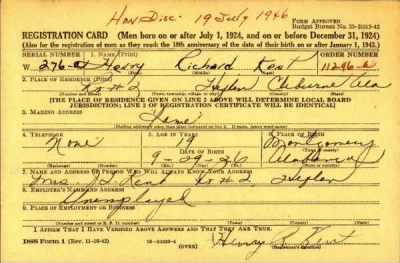 Hon Disc. 19 July 1946
FORM APPROVED
Budget Bureau No. 33-R012-42
REGISTRATION CARD (Men born on or after July 1, 1924, and on or before December 31, 1924)
(Also for the registration of men as they reach the 18th anniversary of the date of their birth on or after January 1, 1943.)
SERIAL NUMBER 1. NAME (Print) ORDER NUMBER
W 276-A Henry Richard Kent 11296-B
(First) (Middle) (Last)
2. PLACE OF RESIDENCE (Print)
Rt #2 Heflin Cleburne Ala
(Number and street) (Town, township, village or city) (County) (State)
[THE PLACE OF RESIDENCE GIVEN ON LINE 2 ABOVE WILL DETERMINE LOCAL BOARD
JURISDICTION; LINE 2 OF REGISTRATION CERTIFICATE WILL BE IDENTICAL]
3. MAILING ADDRESS
Same
[Mailing address if other than place indicated on line 2. If same, insert word same]
4. TELEPHONE 5. AGE IN YEARS 6. PLACE OF BIRTH
None 19 Montgomery
DATE OF BIRTH
9-29-26 Alabama
(Exchange) (Number) (Mo.) (Day) (Yr.) (State or country)
7. NAME AND ADDRESS OF PERSON WHO WILL ALWAYS KNOW YOUR ADDRESS
Mrs Kent Rt #2, Heflin
8. EMPLOYER'S NAME AND ADDRESS
Unemployed
9. PLACE OF EMPLOYMENT OR BUSINESS
(Number and street or R. F. D. number) (Town) (County) (State)
I AFFIRM THAT I HAVE VERIFIED ABOVE ANSWERS AND THAT THEY ARE TRUE.
DSS Form 1 (Rev. 11-16-42) (OVER) Henry R Kent
(Registrant's signature)